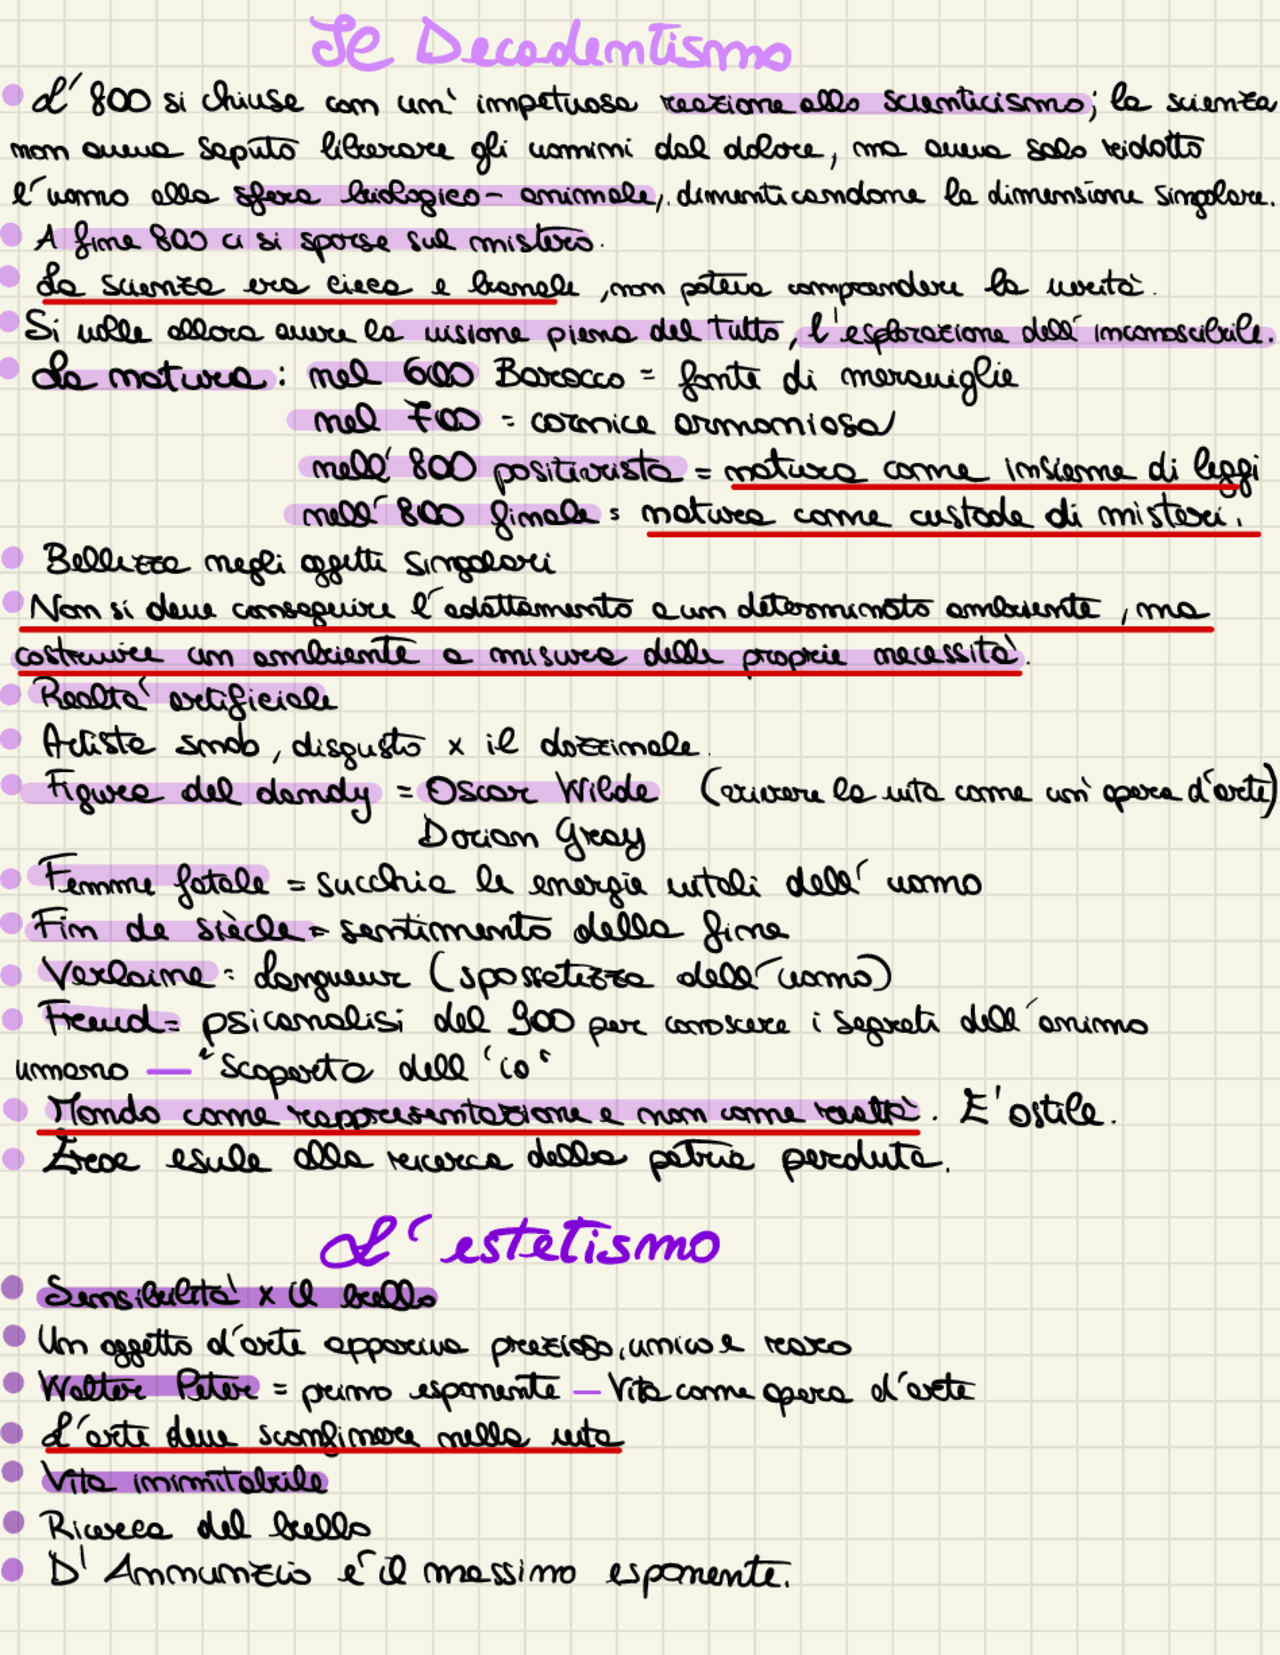 Il Decadentismo
L'800 si chiuse con un' impetuosa reazione allo scienticismo; la scienza
non aveva saputo liberare gli uomini dal dolore, ma aveva solo ridotto
l'uomo alla sfera biologico-animale, dimenticandone la dimensione singolare.
A fine 800 ci si sporse sul mistero.
La scienza era cieca e banale, non poteva comprendere la verità.
Si volle allora avere la visione piena del tutto, l'esplorazione dell' inconoscibile.
La natura: nel 600 Barocco = fonte di meraviglie
nel 700 = cornice armoniosa
nell' 800 positivista = natura come insieme di leggi
nell' 800 finale = natura come custode di misteri.
Bellezza negli oggetti singolari
Non si deve conseguire l'adattamento a un determinato ambiente, ma
costruire un ambiente a misura delle proprie necessità.
Realtà artificiale
Artista snob, disgusto x il dozzinale.
Figura del dandy = Oscar Wilde (vivere la vita come un' opera d'arte)
Dorian Gray
Femme fatale = succhia le energie vitali dell' uomo
Fin de siècle = sentimento della fine
Verlaine = Langueur (spossatezza dell'uomo)
Freud = psicanalisi del 900 per conoscere i segreti dell'animo
umano — "Scoperta dell 'io"
Mondo come rappresentazione e non come realtà. E' ostile.
Eroe esule alla ricerca della patria perduta.
L' estetismo
Sensibilità x il bello
Un oggetto d'arte appariva prezioso, unico e raro
Walter Peter = primo esponente — Vita come opera d'arte
L'arte deve sconfinare nella vita
Vita inimitabile
Ricerca del bello
D' Annunzio è il massimo esponente.